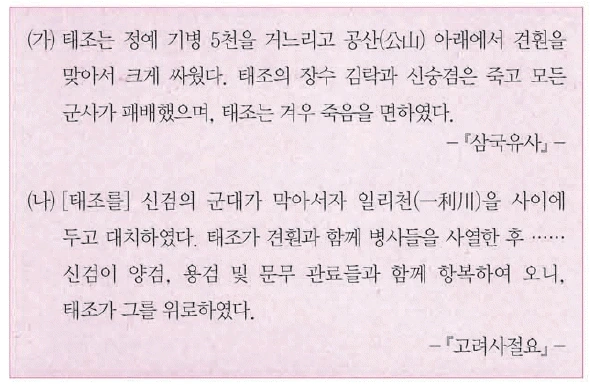 (가) 태조는 정예 기병 5천을 거느리고 공산(公山) 아래에서 견훤을
맞아서 크게 싸웠다. 태조의 장수 김락과 신숭겸은 죽고 모든
군사가 패배했으며, 태조는 겨우 죽음을 면하였다.
-『삼국유사』-
(나) [태조를] 신검의 군대가 막아서자 일리천(一利川)을 사이에
두고 대치하였다. 태조가 견훤과 함께 병사들을 사열한 후 ……
신검이 양검, 용검 및 문무 관료들과 함께 항복하여 오니,
태조가 그를 위로하였다.
-『고려사절요』-